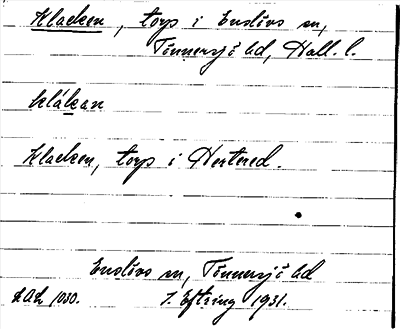 Klacken, torp i Enslövs sn,
Tönnersjö hd, Hall. l.
klákan
Klacken, torp i Hertered.
Enslövs sn, Tönnersjö hd
LAL 1030. J. Eftring 1931.